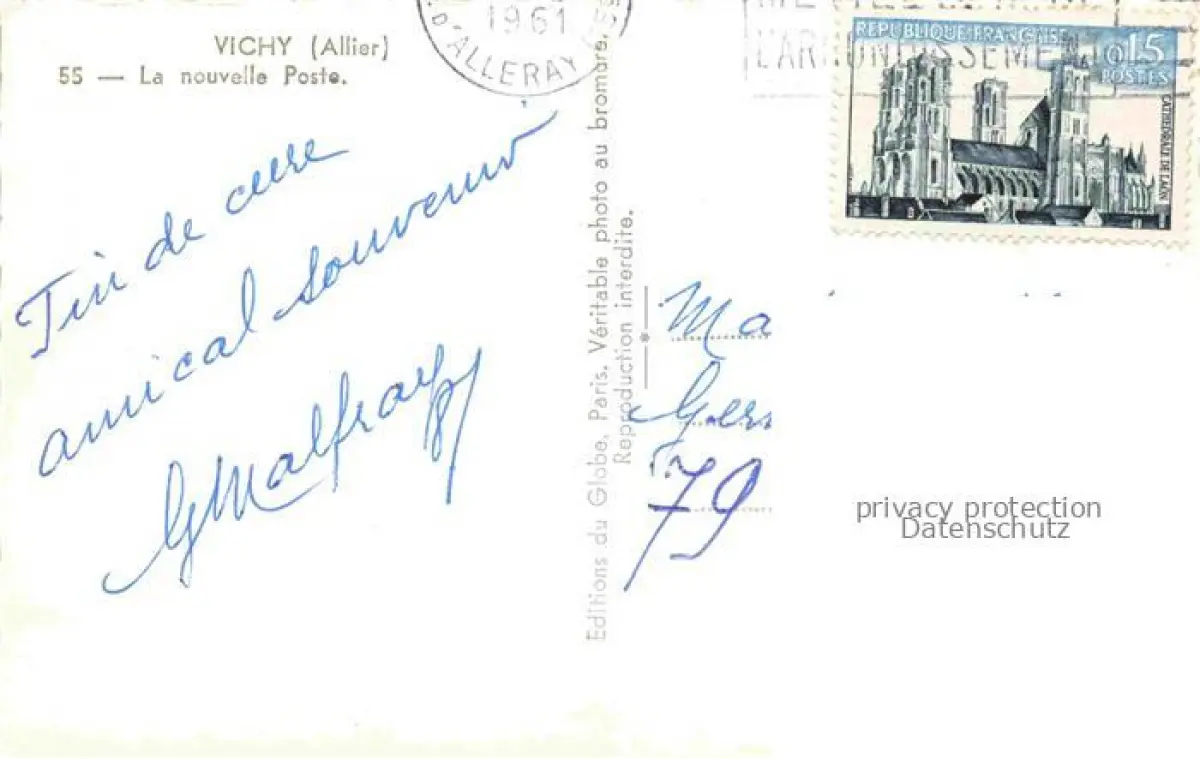 VICHY (Allier)
55 — La nouvelle Poste.
1961
D'ALLERAY
L'ARRONDISSEMENT
REPUBLIQUE FRANÇAISE
0,15
POSTES
CATHEDRALE DE LAON
Fin de cure
amical souvenir
GMalfray
Editions du Globe, Paris. Véritable photo au bromure.
Reproduction interdite.
Ma
79
privacy protection
Datenschutz